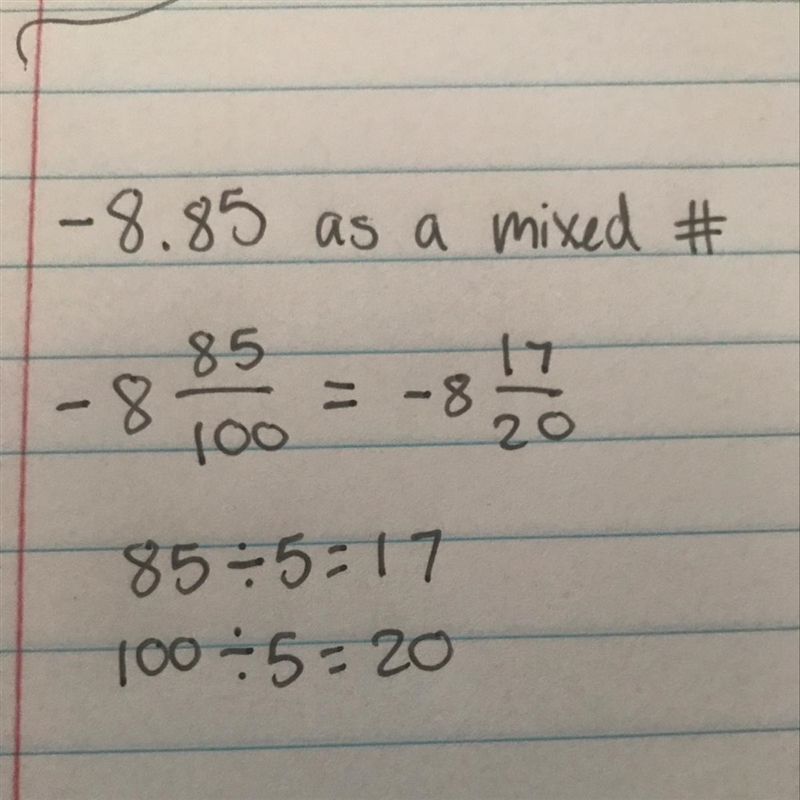 -8.85 as a mixed #
-8 85/100 = -8 17/20
85÷5=17
100÷5=20